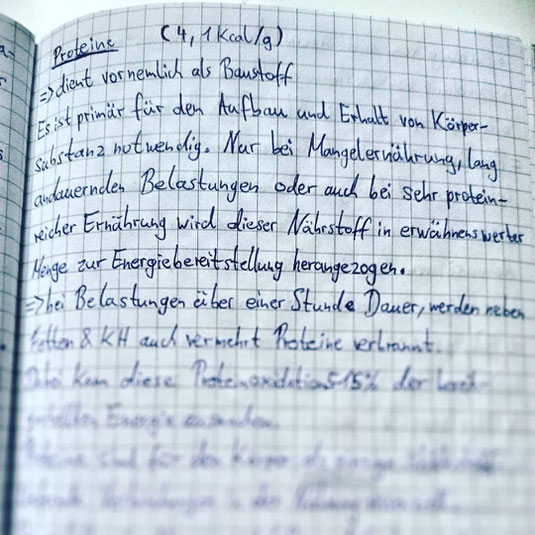 Proteine (4,1Kcal/g)
=> dient vornemlich als Baustoff
Es ist primär für den Aufbau und Erhalt von Körper-
substanz notwendig. Nur bei Mangelernährung, lang
andauernden Belastungen oder auch bei sehr protein-
reicher Ernährung wird dieser Nährstoff in erwähnenswerter
Menge zur Energiebereitstellung herangezogen.
=> bei Belastungen über einer Stunde Dauer, werden neben
Fetten & KH auch vermehrt Proteine verbrannt.
Dabei kann diese Proteinoxidation 5-15% der
Energie
sind für den Körper